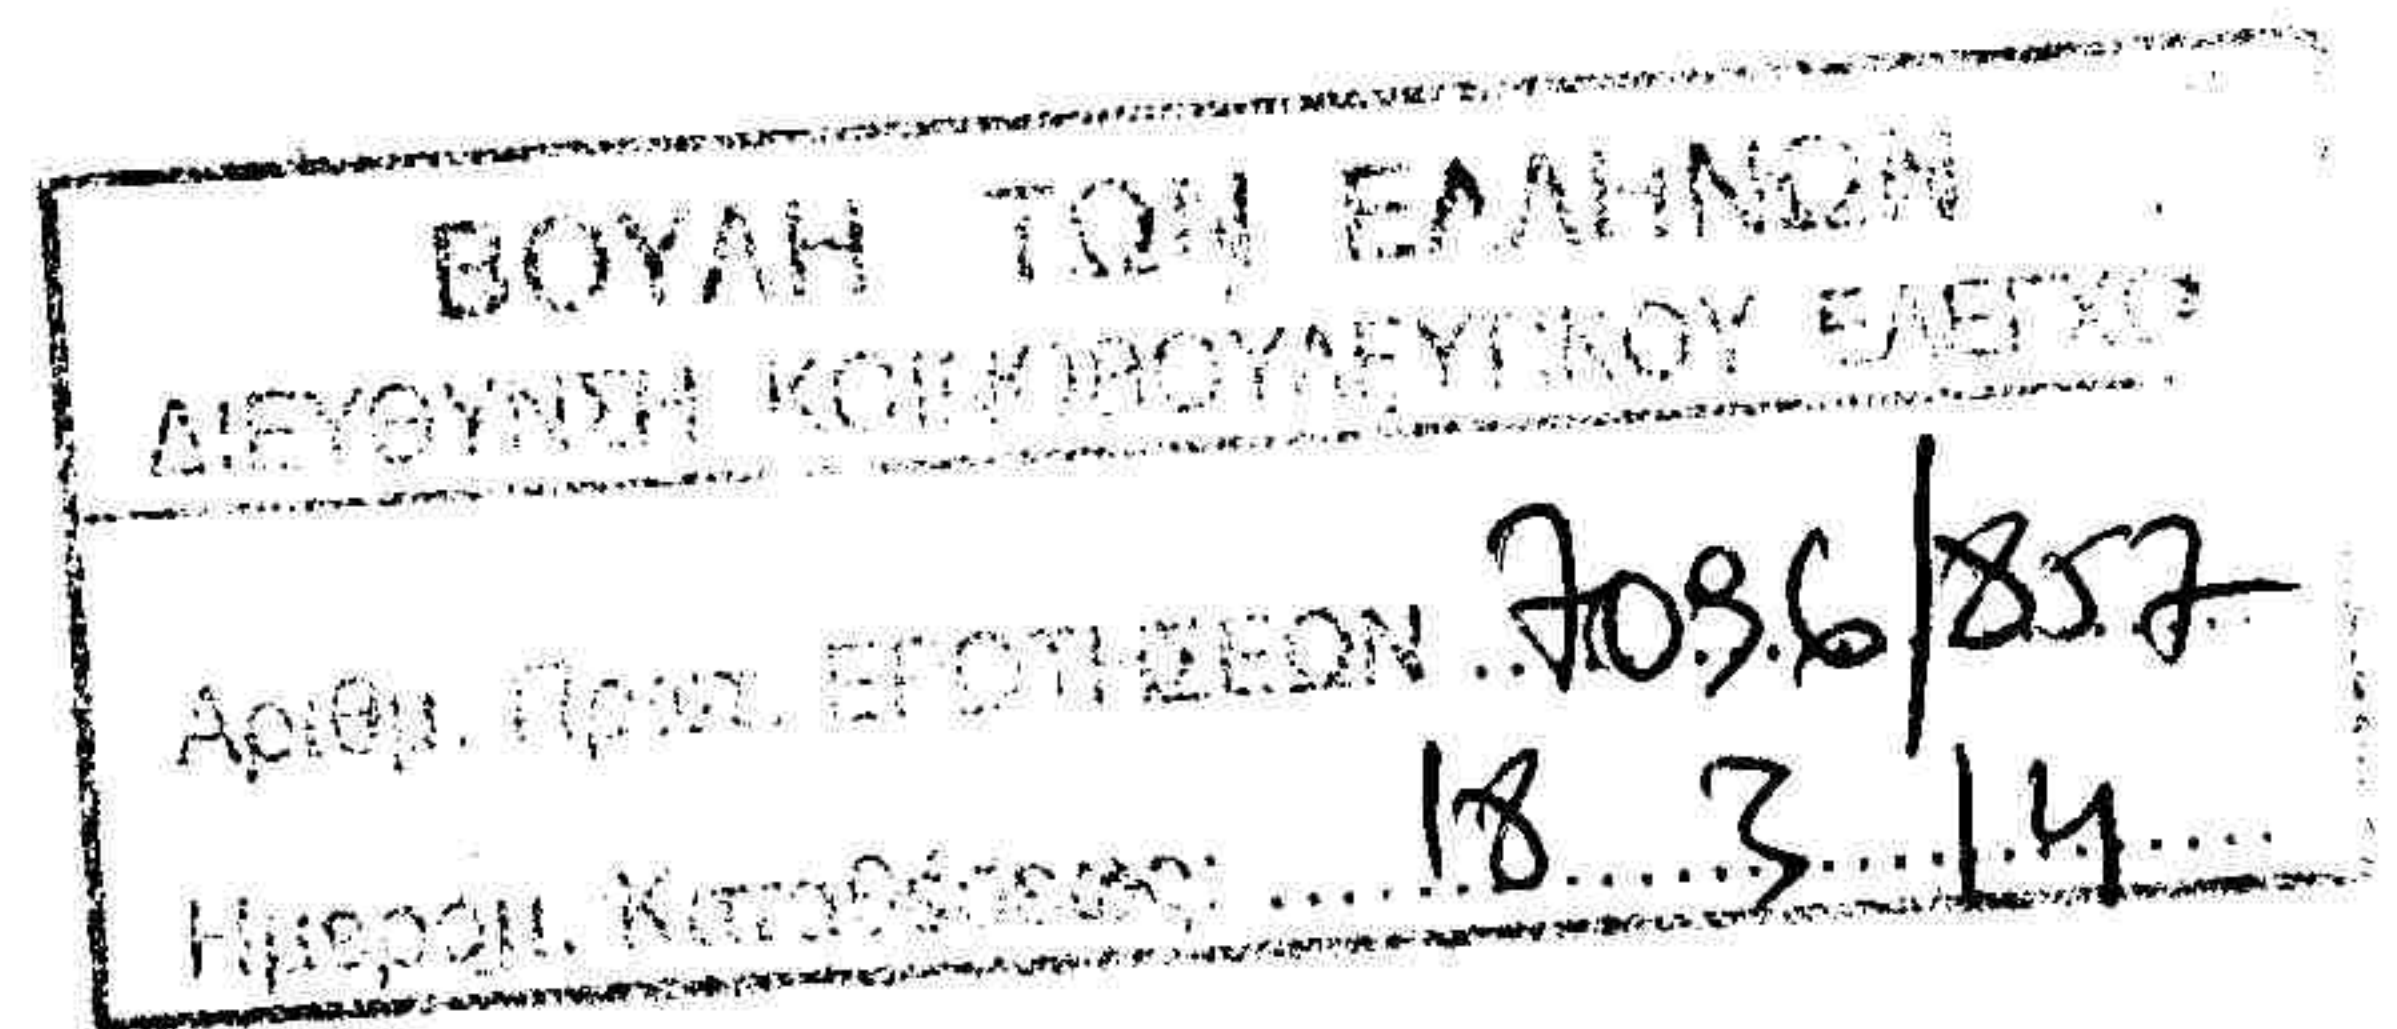 ΒΟΥΛΗ ΤΩΝ ΕΛΛΗΝΩΝ
ΔΙΕΥΘΥΝΣΗ ΚΟΙΝΟΒΟΥΛΕΥΤΙΚΟΥ ΕΛΕΓΧΟ
Αριθμ. Πρωτ. ΕΡΩΤΗΣΕΩΝ ..7096/857
Ημερομ. Καταθέσεως: ....18....3....14....